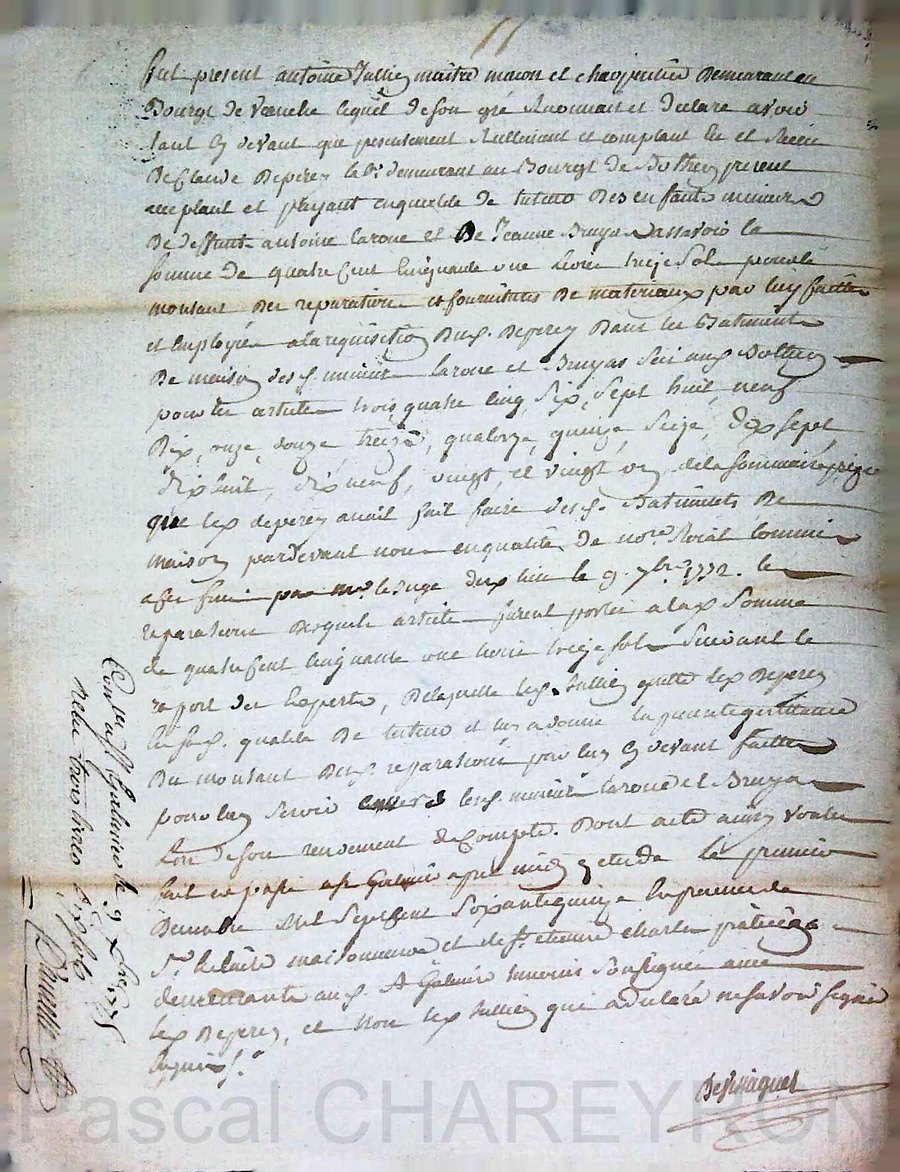 fut present antoine Jullien maitre macon et charpentier demeurant au
Bourgt de veauche lequel de son gré Reconnait et declare avoir
tant cy devant que presentement Reellement et comptant eu et Receu
De Claude Deperey le v. demeurant au Bourgt de Botheon present
acceptant et payant en qualité de tuteur Des enfants mineurs
De deffunt antoine laroue et De Jeanne Bruyas assavoir la
somme de quatre Cent Cinquante une livre treize Sols pour le
montant Des reparations et fournitures De materiaux par luy faittes
et Employés a la requisition dud. Deperey Dans les Batiments
De maison desd. mineurs laroue et Bruyas Scit aud. Botheon
pour les articles trois, quatre, Cinq, Six, Sept, huit, neuf
Dix, onze, douze, treize, quatorze, quinze, Seize, dix Sept
dix huit, dix neuf, vingt, et vingt un, de la Sommaire prize
que led. deperey avait fait faire desd. Batiments De
maison pardevant nous en qualité de no.re Roial Commis
a cet effet par Mr. le Juge dud. lieu le 9. 7bre 1772. les
reparations Desquels articles furent portées a lad. Somme
de quatre Cent Cinquante une livre treize Sols Suivant le
raport des Experts, De laquelle led. Jullien quitte led. Deperey
En sad. qualité De tuteur et luy a donné la presente quittance
Du montant Desd. reparations par luy cy devant faittes
pour luy Servir envers lesd. mineurs laroue et Bruyas
lors de son rendement de Compte. Dont acte ainsy voulu
fait et passé a St Galmier apres midy etude le premier
Decembre Mil Sept Cent Soixante quinze En presence de
Sr. maisonneuve et de Sr. etienne Charles praticiens
demeurants aud. St Galmier temoins Soussignés avec
led. Deperey, et Non led. Jullien qui a declaré ne Savoir Signer
Enquis S.
Pascal CHAREYRON